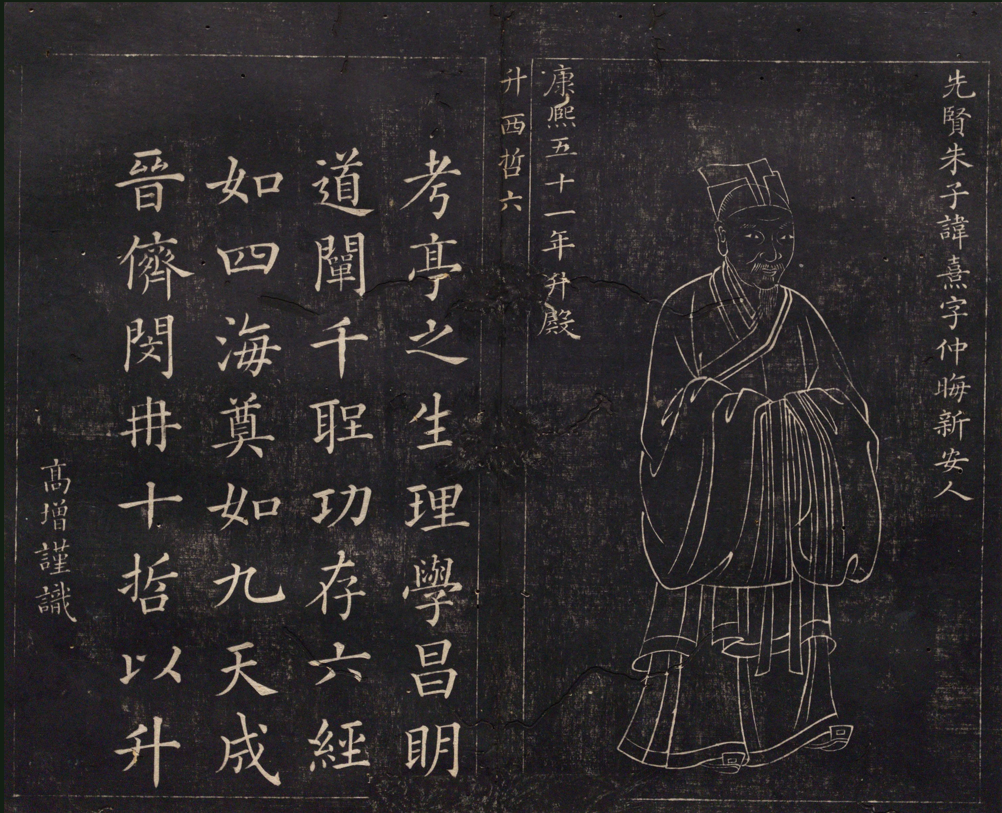 先賢朱子諱熹字仲晦新安人
康熙五十一年升殿
升西哲六
考亭之生理學昌明
道闡千聖功存六經
如四海奠如九天成
晉儕閔冉十哲以升
高增謹識